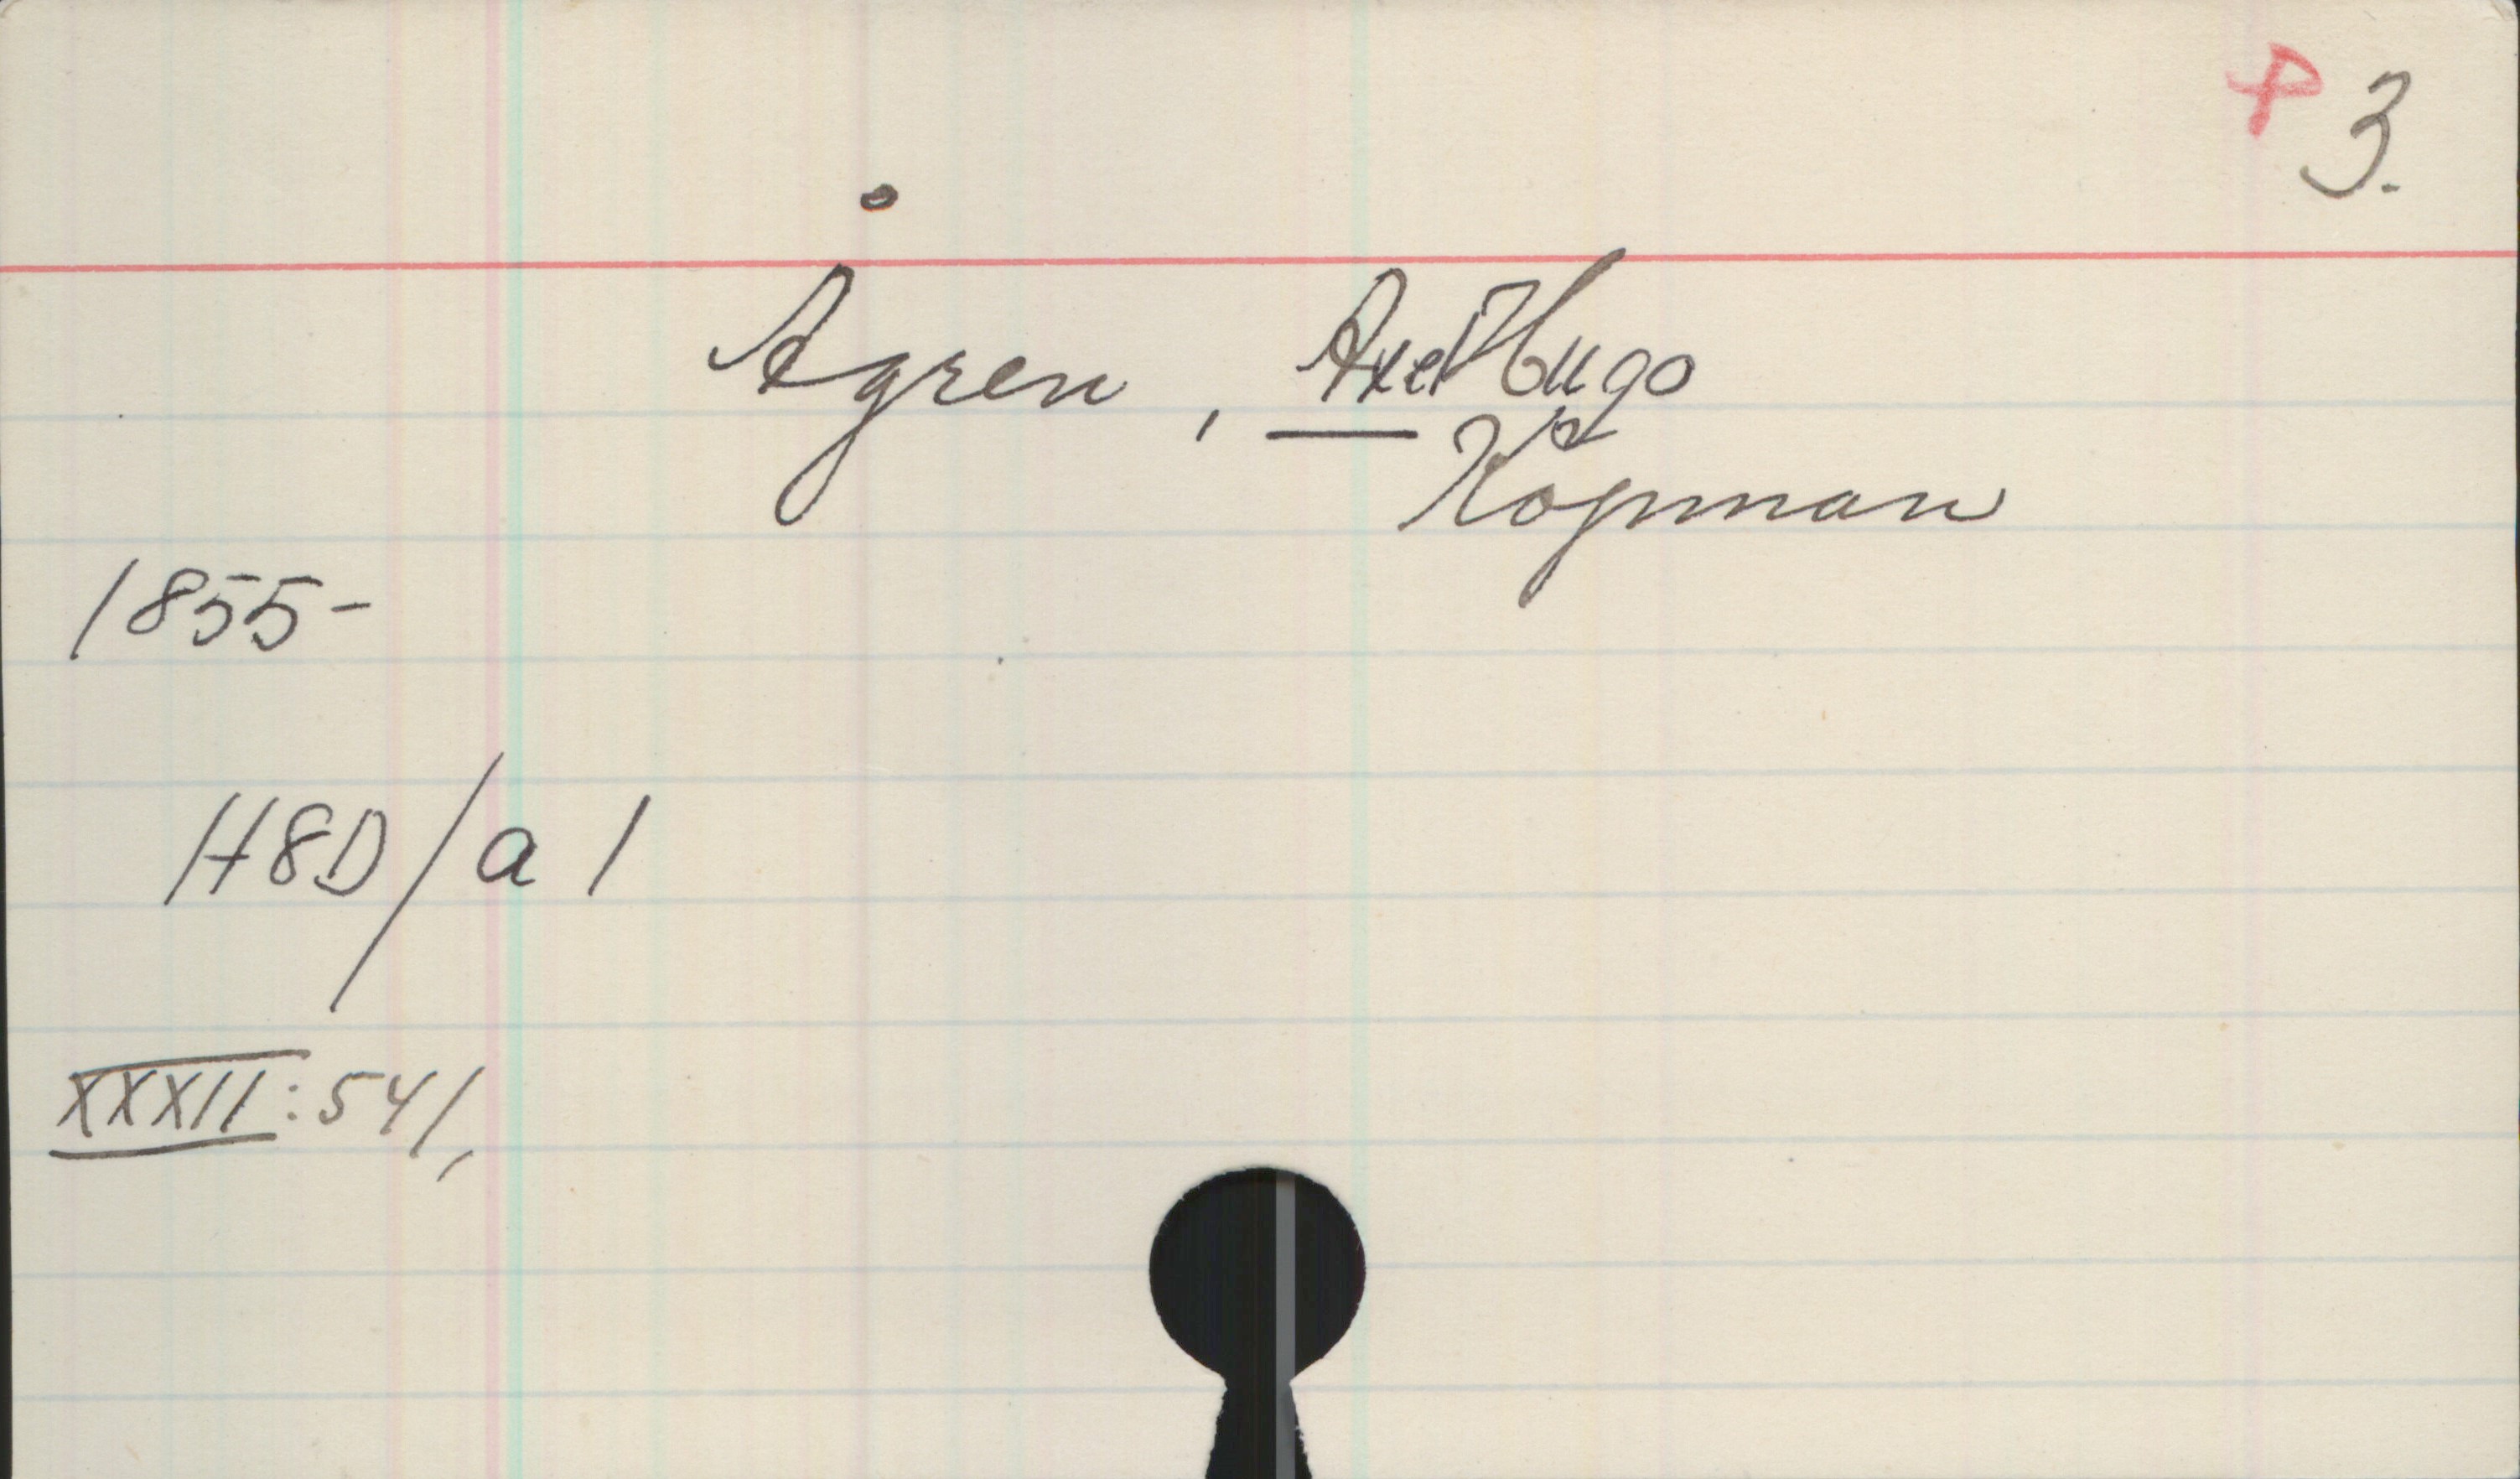 P 3.
Ågren, Axel Hugo
Köpman
1855-
H8D/a 1
XXXII:541,